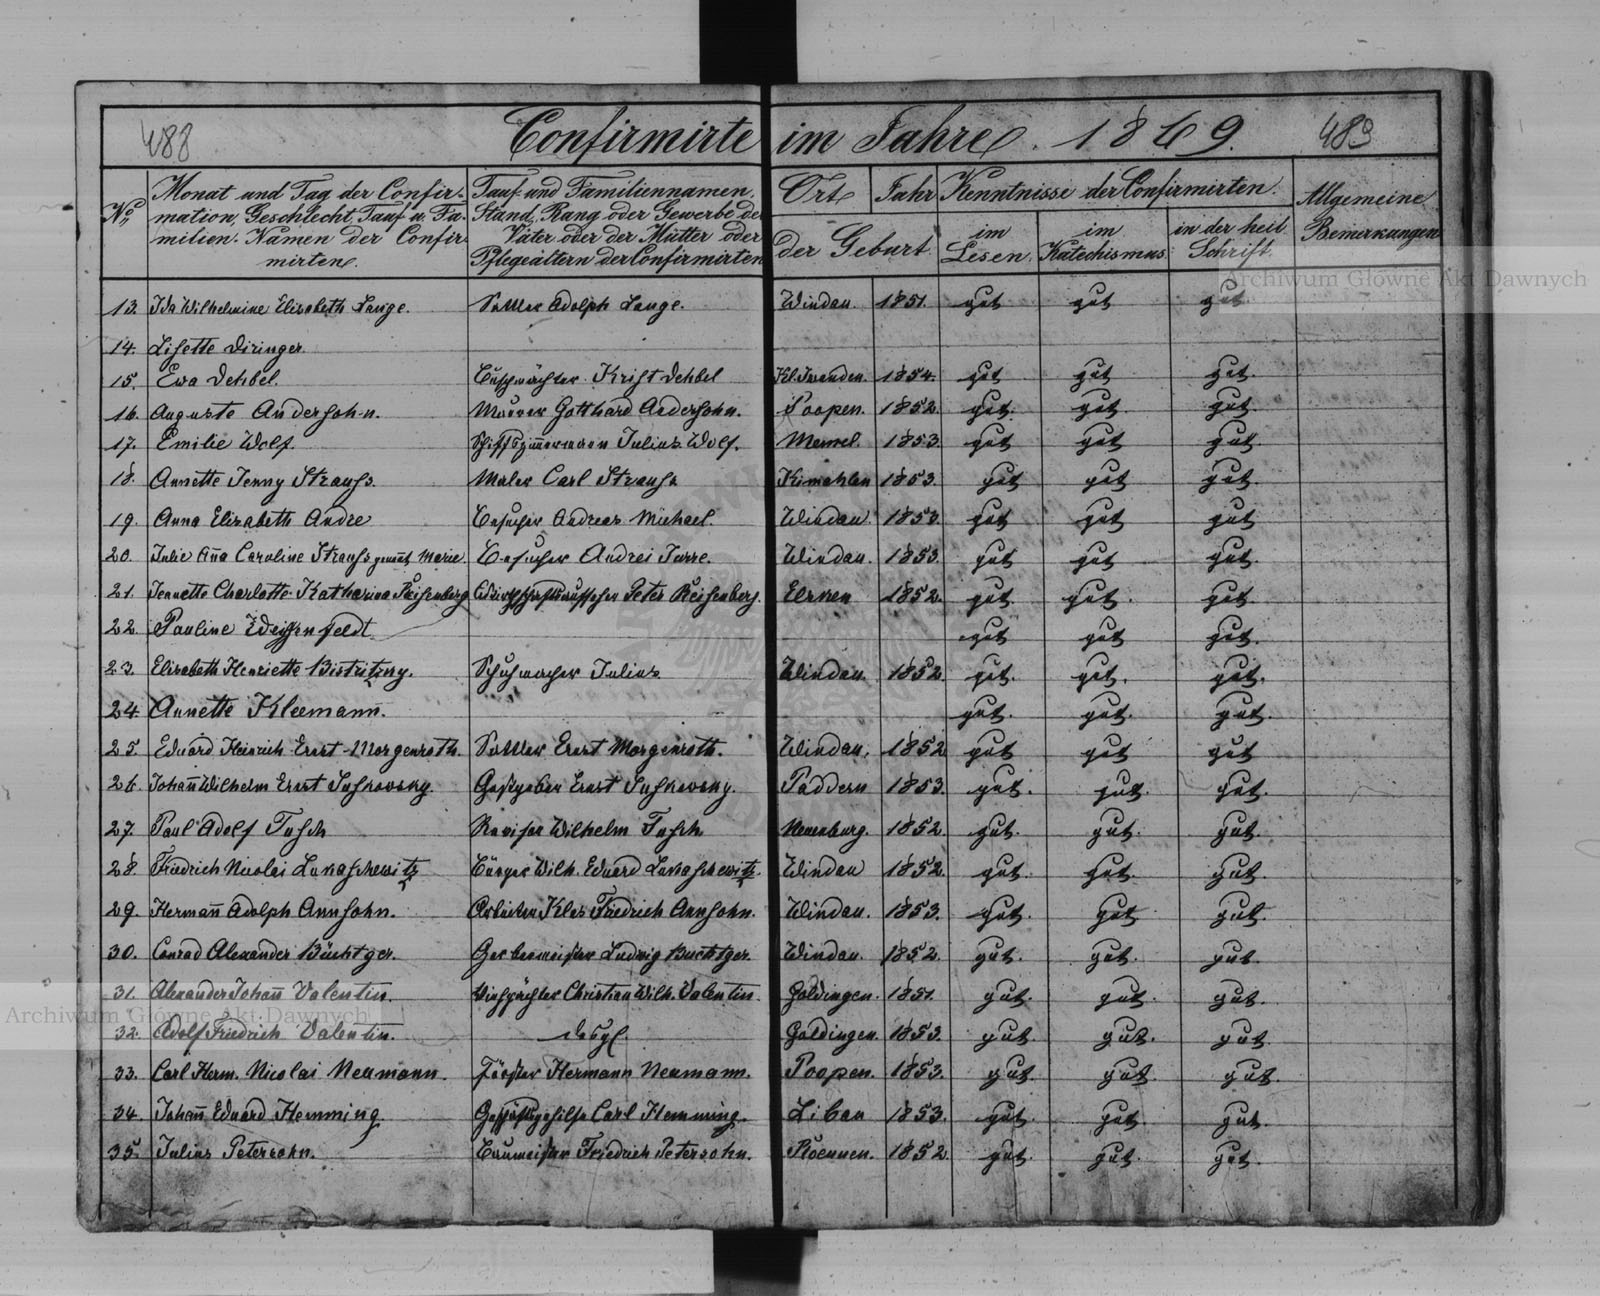 488
Confirmirte im Jahre 1869.
489
No,
Monat und Tag der Confir-
mation, Geschlecht, Tauf u. Fa-
milien-Namen der Confir-
mirten.
Tauf und Familiennamen,
Stand, Rang oder Gewerbe der
Väter oder der Mütter oder
Pflegeältern der Confirmirten
Ort Jahr
der Geburt.
Kenntnisse der Confirmirten.
im Lesen.
im Katechismus.
in der heil. Schrift.
Allgemeine
Bemerkungen
Archiwum Główne Akt Dawnych
13. Ida Wilhelmine Elisabeth Lange. Sattler Adolph Lange. Windau. 1851. gut gut gut
14. Lisette Diringer.
15. Ewa Dehbel. Buschwächter Krist Dehbel 1854. gut gut gut.
16. Auguste Andersohn. Maurer Gotthard Andersohn. Poopen. 1852. gut. gut gut.
17. Emilie Wolf. Schiffszimmermann Julius Wolf. Memel. 1853. gut gut gut.
18. Annette Jenny Strauss. Maler Carl Strauss Kimahlen 1853. gut gut gut.
19. Anna Elisabeth Andre Besucher Andreas Michael. Windau. 1853. gut gut gut
20. Julie Aña Caroline Strauss genañt Marie. Besucher Andrei Windau. 1853. gut gut gut.
21. Jennette Charlotte Katharina Reisenberg Peter Reisenberg. 1852. gut gut. gut.
22. Pauline Weissenfeldt gut gut gut.
23. Elisabeth Henriette Schuhmacher Julius Windau. 1852. gut. gut. gut.
24. Annette Kleemann. gut. gut. gut.
25. Eduard Heinrich Ernst Morgenroth. Sattler Ernst Morgenroth. Windau. 1852 gut gut gut
26. Johañ Wilhelm Ernst Gastgeber Ernst Paddern 1853. gut. gut. gut.
27. Paul Adolf Revisor Wilhelm Neuenburg. 1852. gut. gut. gut.
28. Friedrich Nicolai Lukaschewitz Bürger Wilh. Eduard Lukaschewitz. Windau 1852. gut. gut. gut.
29. Hermañ Adolph Annsohn. Arbeiter Klas Friedrich Annsohn. Windau. 1853. gut. gut gut.
30. Conrad Alexander Büchtger. Gerbermeister Ludwig Buchtger. Windau. 1852. gut. gut. gut.
31. Alexander Johañ Valentin. Viehpächter Christian Wilh. Valentin. Goldingen. 1851. gut. gut. gut.
Archiwum Główne Akt Dawnych
32. Adolf Friedrich Valentin. desgl. Goldingen. 1853. gut gut. gut.
33. Carl Herm. Nicolai Neumann. Förster Hermann Neumann. Poopen. 1853. gut. gut. gut.
34. Johañ Eduard Hemming Carl Hemming. Libau 1853. gut gut. gut.
35. Julius Petersohn. Baumeister Friedrich Petersohn. 1852 gut. gut. gut.